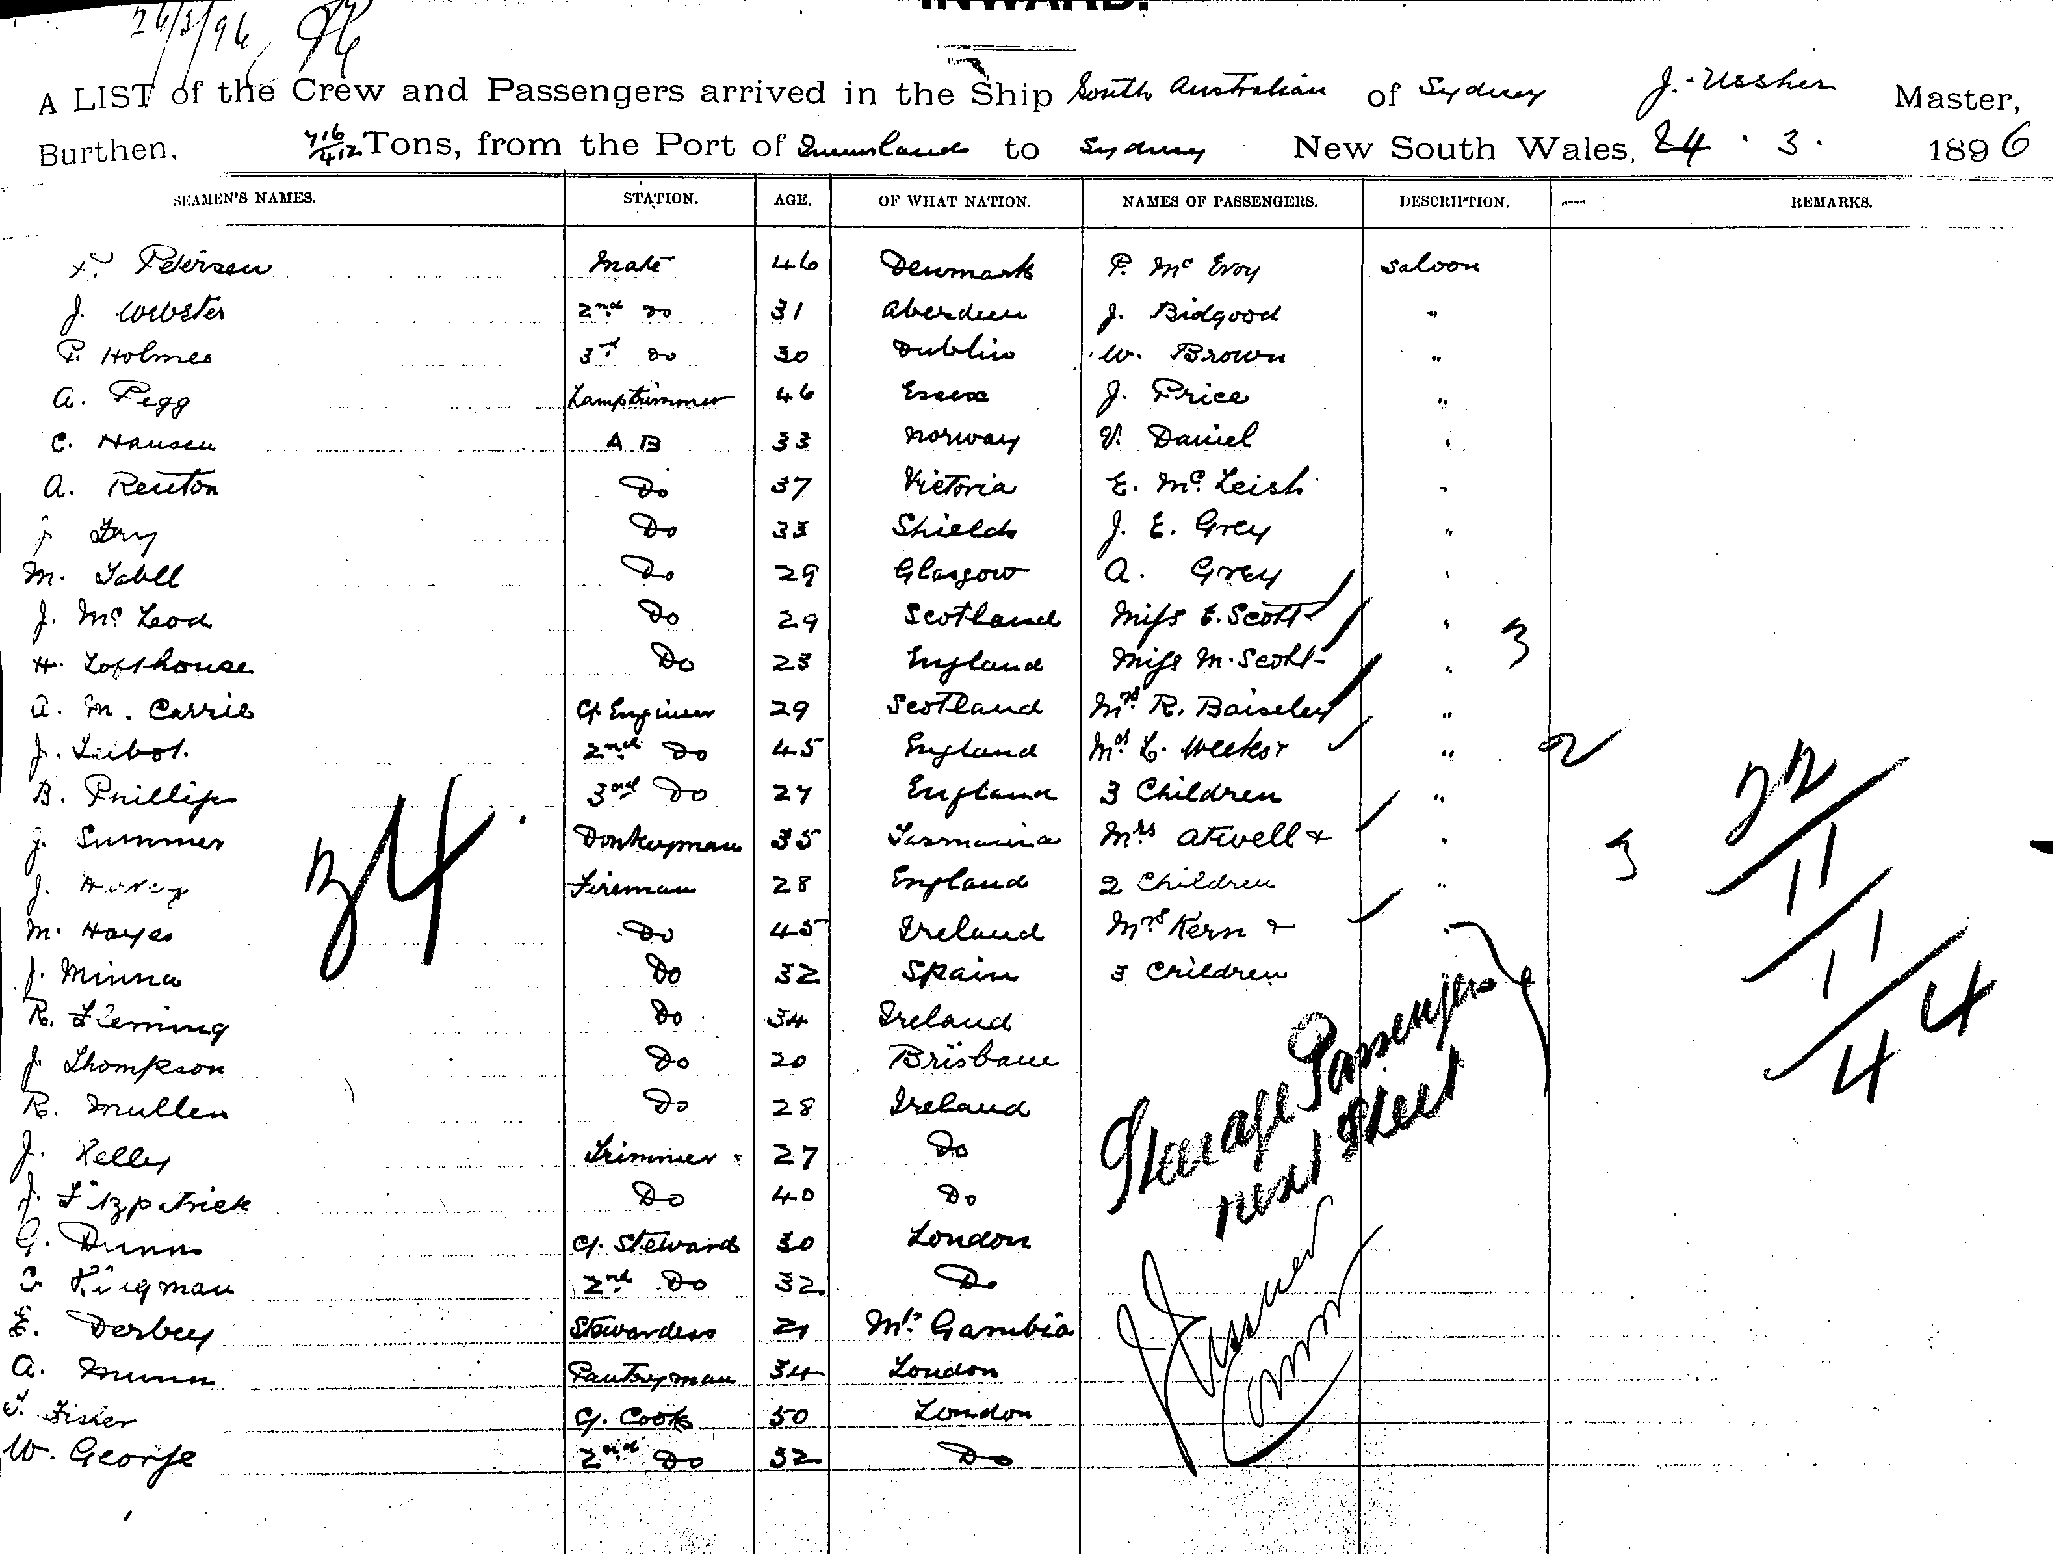 26/3/96
INWARD.
A LIST of the Crew and Passengers arrived in the Ship South Australian of Sydney J. Ussher Master,
Burthen, 716/412 Tons, from the Port of Queensland to Sydney New South Wales, 24 . 3 . 1896
SEAMEN'S NAMES. STATION. AGE. OF WHAT NATION. NAMES OF PASSENGERS. DESCRIPTION. REMARKS.
Petersen Mate 46 Denmark P. Mc Evoy Saloon
J. Webster 2nd Do 31 Aberdeen J. Bidgood "
P. Holmes 3rd Do 30 Dublin W. Brown "
A. Pegg Lamptrimmer 46 Essex J. Price "
C. Hansen A B 33 Norway V. Daniel "
A. Renton Do 37 Victoria E. Mc Leish "
J. Fry Do 33 Shields J. E. Grey "
M. Do 29 Glasgow A. Grey "
J. Mc Leod Do 29 Scotland Miss E. Scott "
H. Lofthouse Do 23 England Miss M. Scott " 3
A. M. Carrie Cf Engineer 29 Scotland Mrs R. Baiseley "
J. 2nd Do 45 England Mrs L. Weeks + " 2
B. Phillips 3rd Do 27 England 3 Children "
J. Summer Donkeyman 35 Tasmania Mrs Atwell + " 3
J. Fireman 28 England 2 Children "
M. Hayes Do 45 Ireland Mrs Kern + "
J. Minna Do 32 Spain 3 Children
R. Fleming Do 34 Ireland
J. Thompson Do 20 Brisbane
R. Mullen Do 28 Ireland
J. Kelley Trimmer 27 Do
J. Fitzpatrick Do 40 Do
G. Dunn Cf. Steward 30 London
C. Kingman 2nd Do 32 Do
E. Derbey Stewardess 21 Mt. Gambia
A. Munn Pantryman 34 London
T. Fisher Cf. Cook 50 London
W. George 2nd Do 32 Do
34
4
22
11
11
44
Steerage Passengers
next Sheet
J Ussher